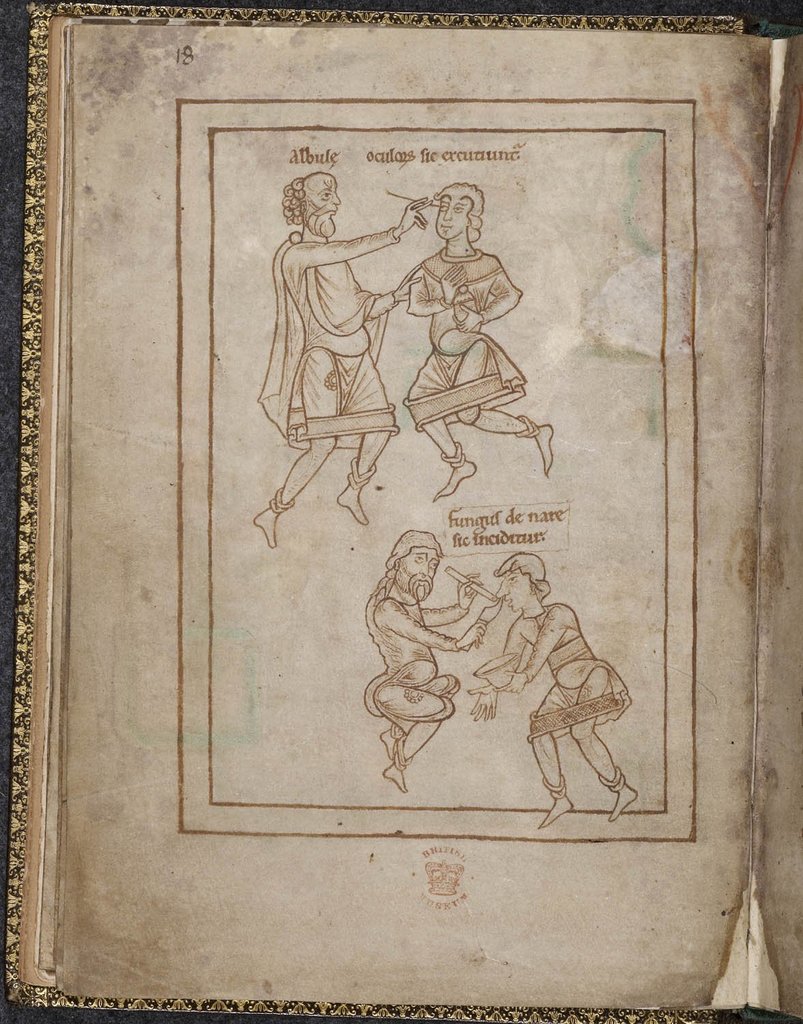 18
Albulę oculoꝝ sic excutiunt᷑
fungus de nare
sic inciditur.
BRITISH
MUSEUM